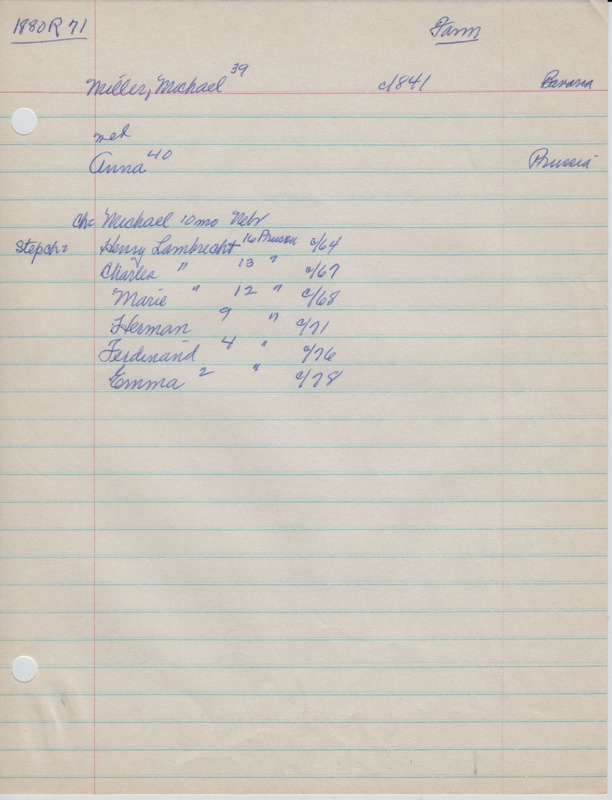 1880R 71 Farm
Miller, Michael 39 c1841 Bavaria
med
Anna 40 Prussia
Ch: Michael 10 mo Nebr
Stepch: Henry Lambrecht 16 Prussia c/64
Charles " 13 " c/67
Marie " 12 " c/68
Herman 9 " c/71
Ferdinand 4 " c/76
Emma 2 " c/78